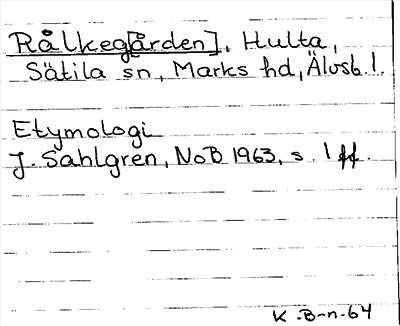 Rålkeg[ården], Hulta,
Sätila sn, Marks hd, Älvsb. l.
Etymologi
J. Sahlgren, NoB 1963, s. 1 ff.
K. B-n-64